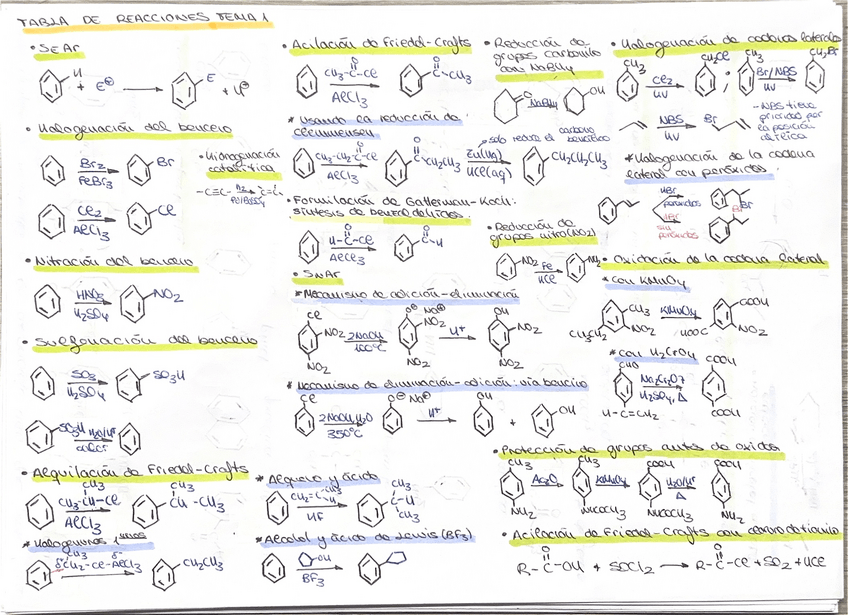 TABLA DE REACCIONES TEMA 1
• SEAr
H
+ E⊕
E
+ H⊕
• Halogenación del benceno
Br2
FeBr3
Br
Cl2
AlCl3
Cl
• Hidrogenación
catalítica
-C≡C-
H2
Pd/BaSO4
• Nitración del benceno
HNO3
H2SO4
NO2
• Sulfonación del benceno
SO3
H2SO4
SO3H
SO3H
H2O/H+
calor
• Alquilación de Friedel-Crafts
CH3
CH3-CH-Cl
AlCl3
CH3
CH-CH3
* Halogenuros 1arios
CH3
CH2-Cl-AlCl3
CH2CH3
• Acilación de Friedel-Crafts
O
CH3-C-Cl
AlCl3
O
C
CH3
* Usando la reducción de
Clemmensen
O
CH3-CH2-C-Cl
AlCl3
O
CCH2CH3
solo reduce el carbono
bencílico
Zn(Hg)
HCl(aq)
CH2CH2CH3
• Formilación de Gatterman-Koch:
síntesis de benzaldehídos
O
H-C-Cl
AlCl3
O
C
H
• SNAr
* Mecanismo de adición-eliminación
Cl
NO2
NO2
2NaOH
100°C
O⊖ Na⊕
NO2
NO2
H+
OH
NO2
NO2
* Mecanismo de eliminación-adición: vía bencino
Cl
2NaOH, H2O
350°C
O⊖ Na⊕
H+
OH
+
OH
* Alqueno y ácido
CH3
CH2=C
H
HF
CH3
C-H
CH3
* Alcohol y ácido de Lewis (BF3)
OH
BF3
• Reducción de
grupos carbonilo
con NaBH4
O
NaBH4
OH
• Reducción de
grupos nitro(NO2)
NO2
Fe
HCl
NH2
• Halogenación de cadenas laterales
CH3
Cl2
UV
CH2Cl
;
CH3
Br/NBS
UV
CH2Br
NBS
UV
Br
-NBS tiene
prioridad por
la posición
alílica
* Halogenación de la cadena
lateral con peróxidos
HBr
peróxidos
Br
HBr
sin
peróxidos
• Oxidación de la cadena lateral
* con KMnO4
CH3
CH3CH2
NO2
KMnO4
COOH
HOOC
NO2
* con H2CrO4
CHO
H-C=CH2
Na2Cr2O7
H2SO4, Δ
COOH
COOH
• Protección de grupos antes de oxidar
CH3
NH2
Ac2O
CH3
NHCOCH3
KMnO4
COOH
NHCOCH3
H2O/H+
Δ
COOH
NH2
• Acilación de Friedel-Crafts con cloruro de tionilo
O
R-C-OH + SOCl2 → R-C-Cl + SO2 + HCl